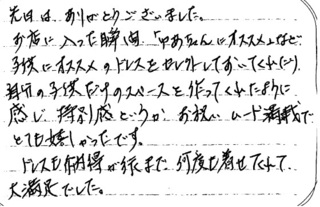 先日は、ありがとうございました。
お店に入った瞬間、「ゆあちゃんにオススメ」など
子供にオススメのドレスをセレクトしておいてくれたり、
自分の子供だけのスペースを作ってくれたように
感じ、特別感というか、お祝いムード満載で
とても嬉しかったです。
ドレスも納得が行くまで何度も着せてくれて
大満足でした。